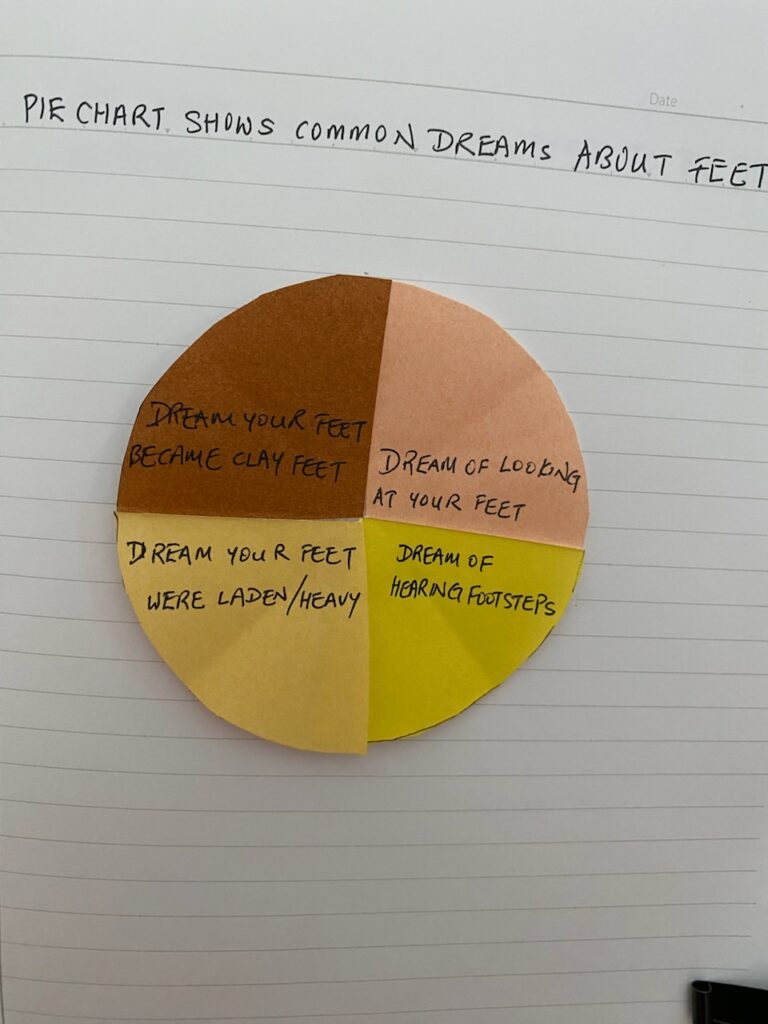 Date
PIE CHART SHOWS COMMON DREAMS ABOUT FEET
DREAM YOUR FEET
BECAME CLAY FEET
DREAM OF LOOKING
AT YOUR FEET
DREAM YOUR FEET
WERE LADEN/HEAVY
DREAM OF
HEARING FOOTSTEPS